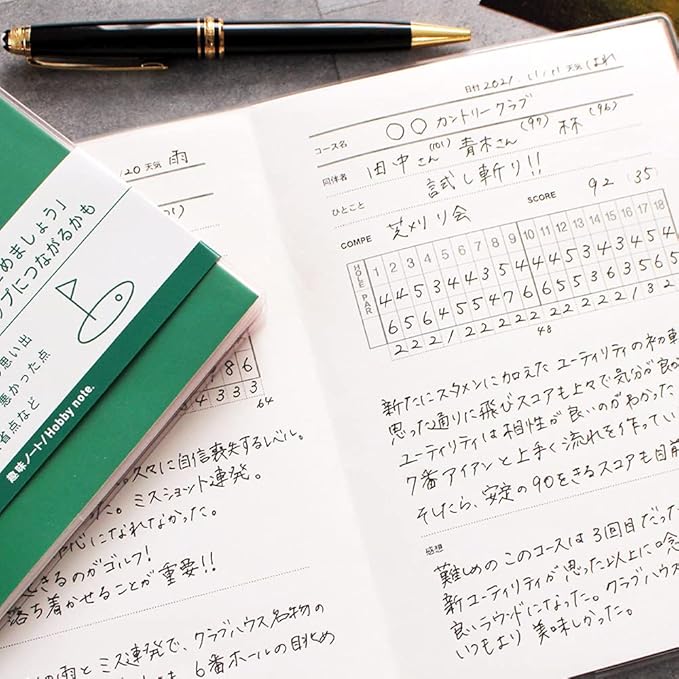 めましょう」
プにつながるかも
思い出
悪かった点
省点など
趣味ノート/Hobby note.
20 天気 雨
7 8 6
4 3 3 3
64
々に自信喪失するレベル。
た。ミスショット連発。
心になれなかった。
きるのがゴルフ!
落ち着かせることが重要!!
の雨とミス連発で、クラブハウス名物の
6番ホールの眺め
日付 2021. 天気 はれ
コース名 〇〇カントリークラブ
同伴者 田中さん(101) 青木さん(97) 林(96)
ひとこと 試し斬り!!
COMPE 芝刈り会 SCORE 92 (35)
HOLE 1 2 3 4 5 6 7 8 9 10 11 12 13 14 15 16 17 18
PAR 4 4 5 3 4 4 3 5 4 4 4 5 3 4 3 4 5 4
6 5 6 4 5 5 4 7 6 6 5 5 3 6 3 5 6 5
2 2 2 1 2 2 2 2 2 2 2 2 2 2 2 1 3 2
48
新たにスタメンに加えたユーティリティの初
思った通りに飛びスコアも上々で気分が良
ユーティリティは相性が良いのがわかった
7番アイアンと上手く流れを作ってい
そしたら、安定の90をきるスコアも目前
感想
難しめのこのコースは3回目だった
新ユーティリティが思った以上に
良いラウンドになった。クラブハウス
いつもより美味しかった。